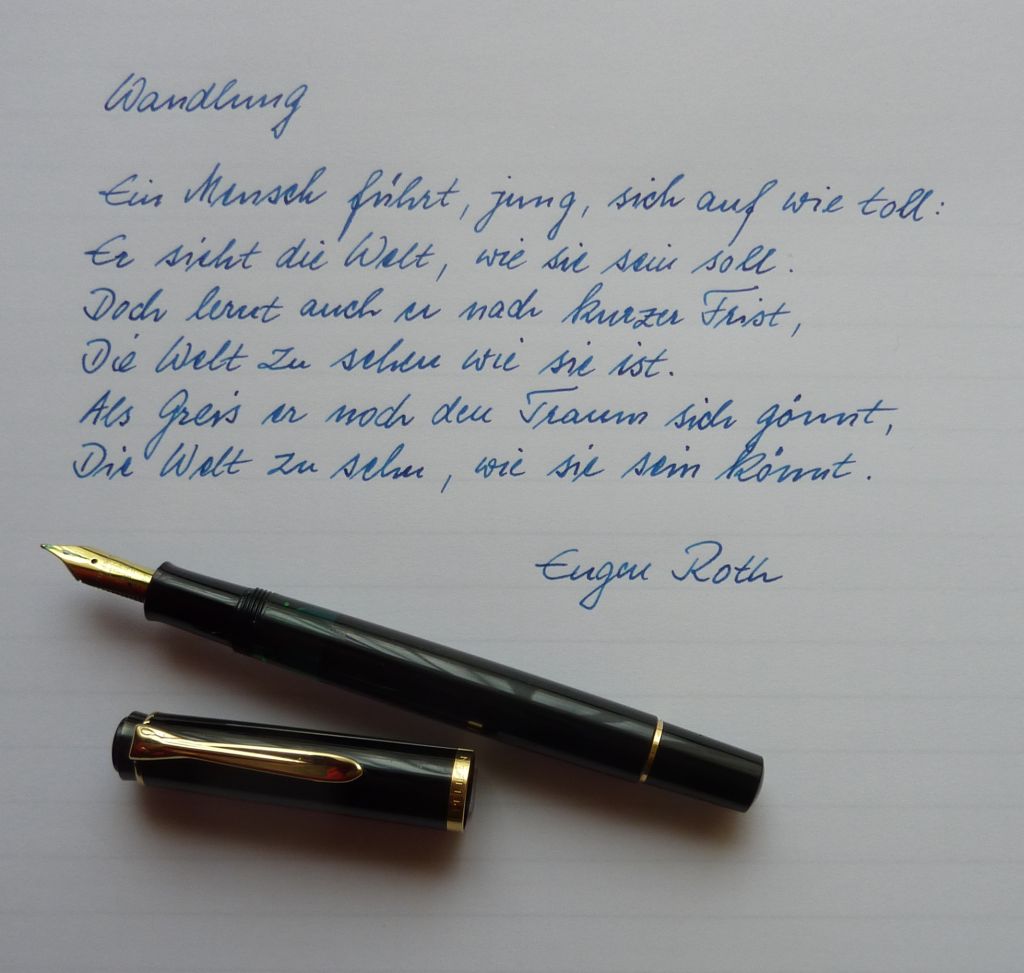 Wandlung
Ein Mensch führt, jung, sich auf wie toll:
Er sieht die Welt, wie sie sein soll.
Doch lernt auch er nach kurzer Frist,
Die Welt zu sehen wie sie ist.
Als Greis er noch den Traum sich gönnt,
Die Welt zu sehn, wie sie sein könnt.
Eugen Roth